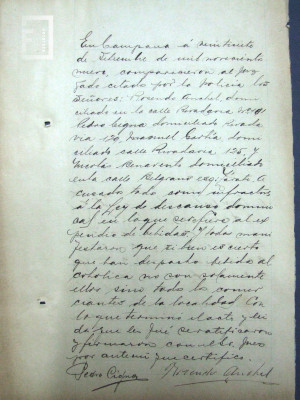 En Campana á veintisiete
de Febrero de mil novecientos
nueve, comparecieron al Juz
gado citados por la policia los
Señores: Rosendo Anchel, domi
ciliado en la calle Rivadavia
Pedro Cigna domiciliado Rivada
via 120, Manuel Garcia domi
ciliado calle Rivadavia 125, y
Nicola Benavento domiciliado
en la calle Belgrano
cusados todos como infractores
á la ley de descanso domini
cal en lo que se refiere al ex
pendio de bebidas. Y todos mani
festaron que si bien es cierto
que han despachado bebidas al
no son solamente
ellos sino todo el comer
ciante de la localidad. Con
lo que termino el acto y lei
da que les fué se ratificaron
y firmaron con el Sr. Juez
por ante mi que certifico.
Pedro Cigna Rosendo Anchel